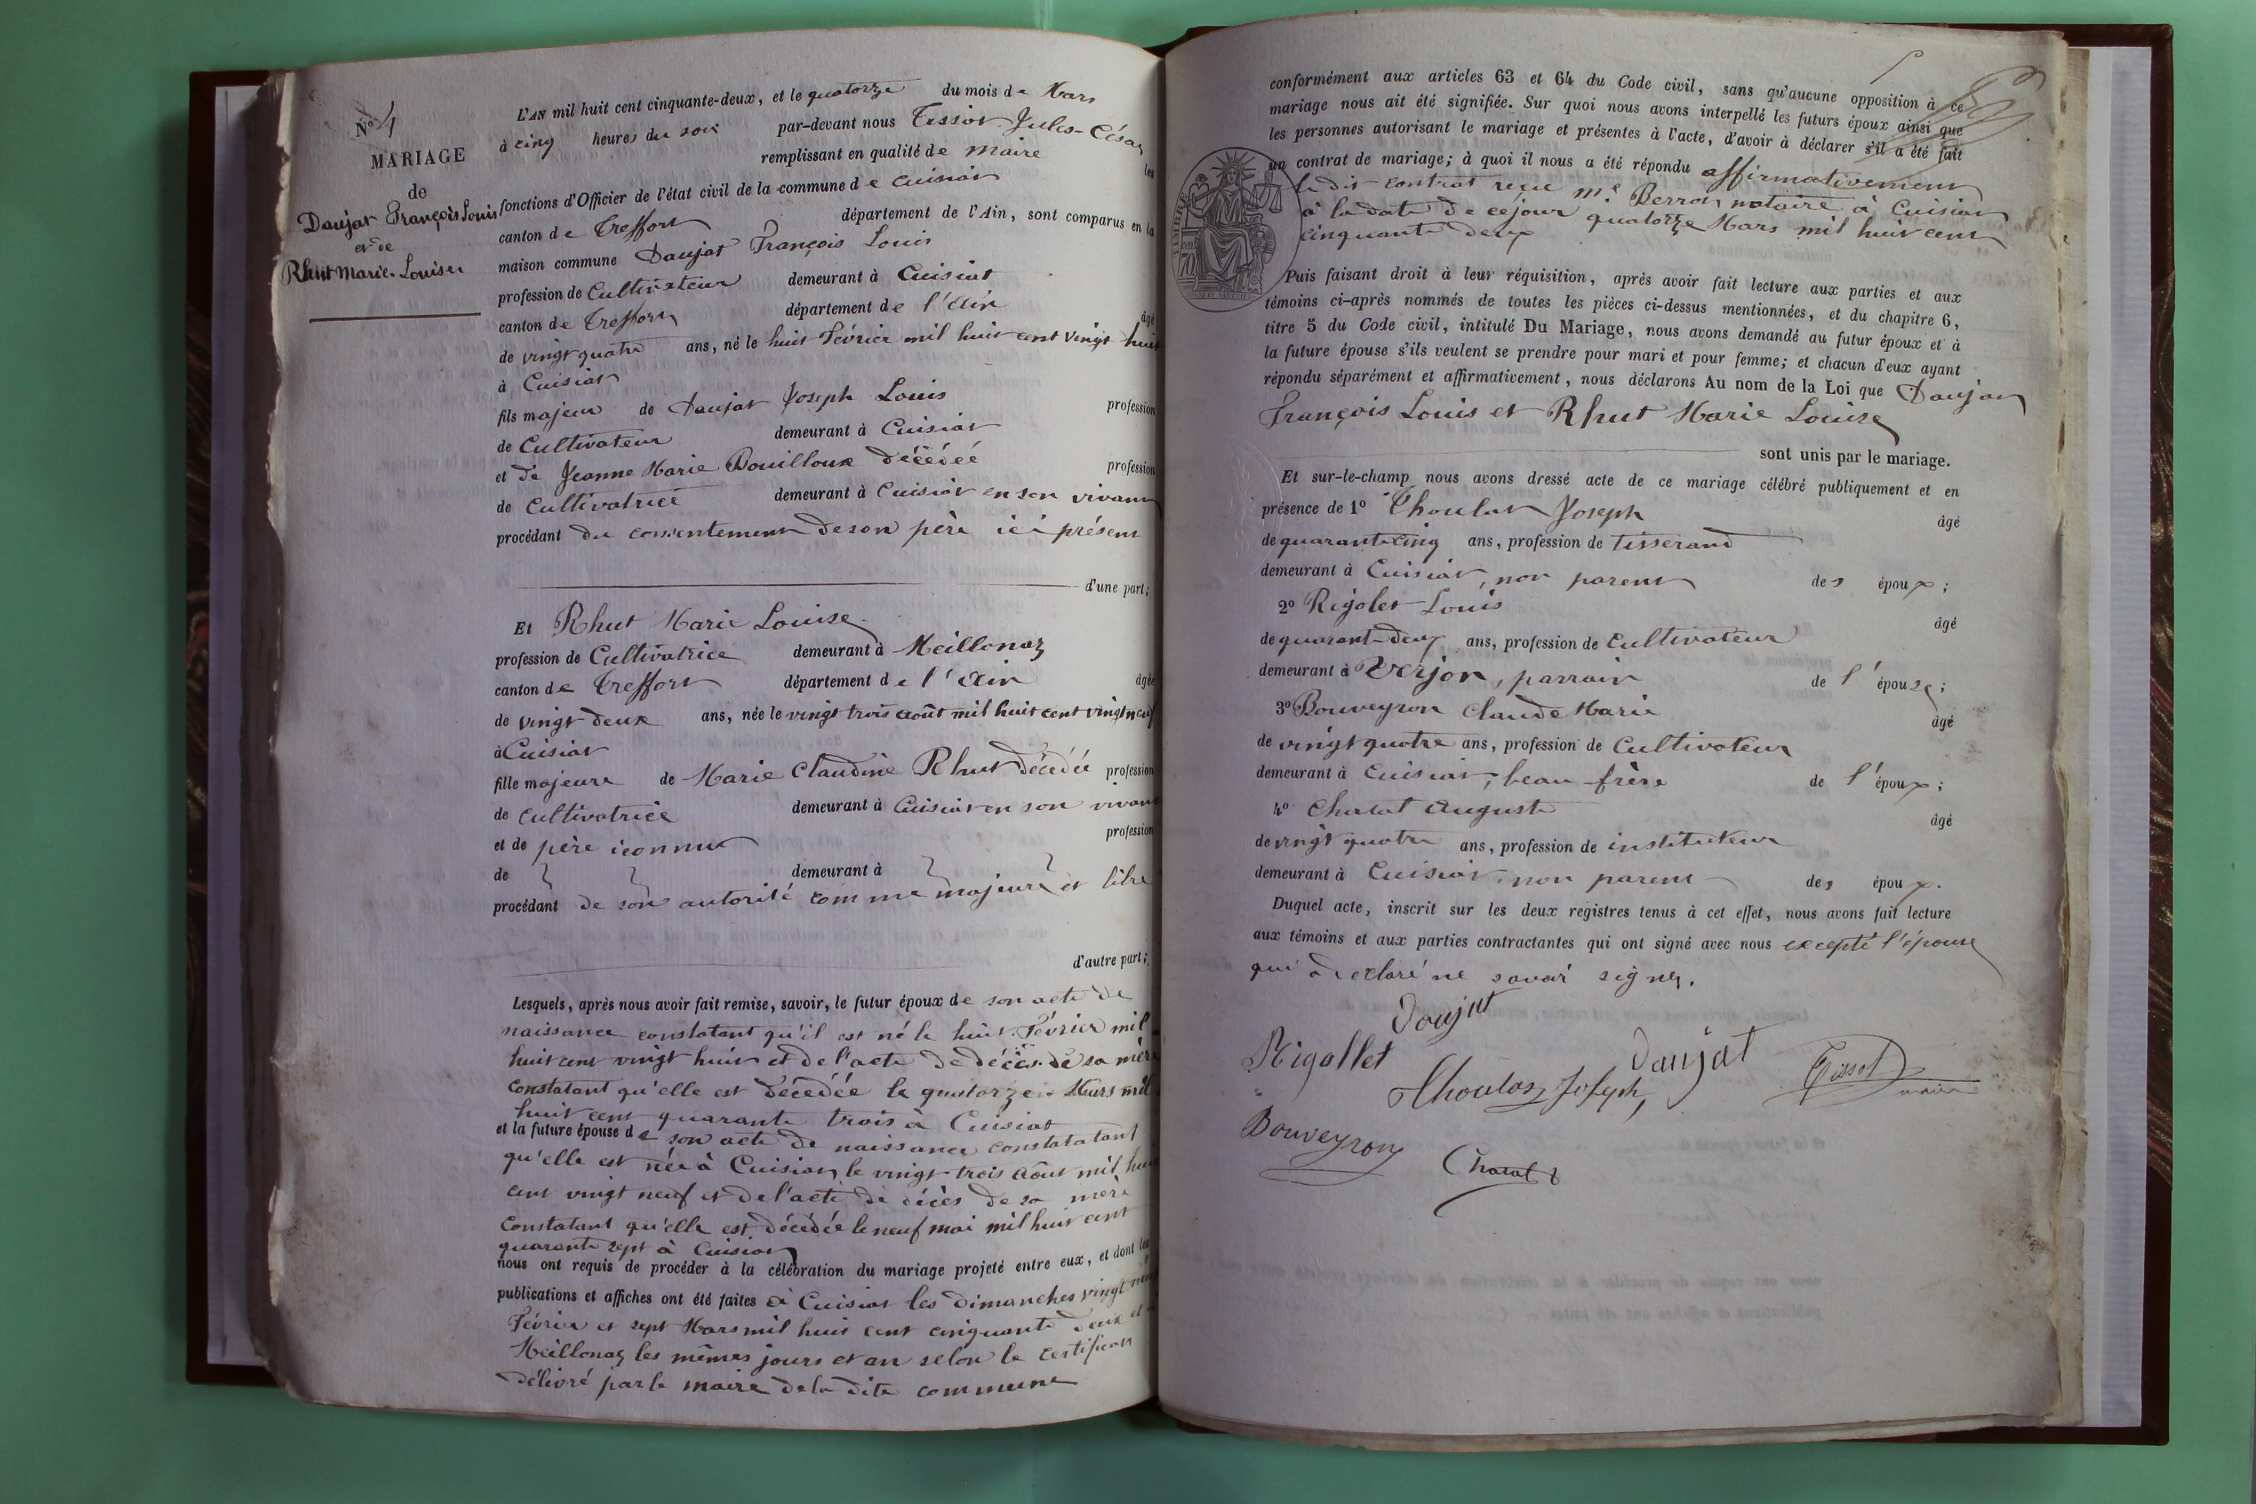 N° 4
MARIAGE
de
Daujat François Louis
et de
Rhut Marie Louise
L'AN mil huit cent cinquante-deux, et le quatorze du mois de Mars
à cinq heures du soir par-devant nous Tissot Jules-César
remplissant en qualité de maire les
fonctions d'Officier de l'état civil de la commune de Cuisiat
canton de Treffort département de l'Ain, sont comparus en la
maison commune Daujat François Louis
profession de Cultivateur demeurant à Cuisiat
canton de Treffort département de l'Ain âgé
de vingt quatre ans, né le huit Février mil huit cent vingt huit
à Cuisiat
fils majeur de Daujat Joseph Louis profession
de Cultivateur demeurant à Cuisiat
et de Jeanne Marie Bouilloux décédée profession
de Cultivatrice demeurant à Cuisiat en son vivant
procédant du consentement de son père ici présent
d'une part;
Et Rhut Marie Louise
profession de Cultivatrice demeurant à Meillonaz
canton de Treffort département de l'Ain âgée
de vingt deux ans, née le vingt trois août mil huit cent vingt neuf
à Cuisiat
fille majeure de Marie Claudine Rhut décédée profession
de cultivatrice demeurant à Cuisiat en son vivant
et de père iconnu profession
de demeurant à
procédant de son autorité comme majeure et libre
d'autre part;
Lesquels, après nous avoir fait remise, savoir, le futur époux de son acte de
naissance constatant qu'il est né le huit Février mil
huit cent vingt huit et de l'acte de décès de sa mère
constatant qu'elle est décédée le quatorze Mars mil
huit cent quarante trois à Cuisiat
et la future épouse de son acte de naissance constatatant
qu'elle est née à Cuisiat le vingt trois août mil huit
cent vingt neuf et de l'acte de décès de sa mère
constatant qu'elle est décédée le neuf mai mil huit cent
quarante sept à Cuisiat
nous ont requis de procéder à la célébration du mariage projeté entre eux, et dont les
publications et affiches ont été faites à Cuisiat les dimanches vingt neuf
Février et sept Mars mil huit cent cinquante deux et à
Meillonaz les mêmes jours et an selon le certificat
délivré par le maire de la dite commune
conformément aux articles 63 et 64 du Code civil, sans qu'aucune opposition à ce
mariage nous ait été signifiée. Sur quoi nous avons interpellé les futurs époux ainsi que
les personnes autorisant le mariage et présentes à l'acte, d'avoir à déclarer s'il a été fait
un contrat de mariage; à quoi il nous a été répondu affirmativement
le dit contrat reçu Me. Perrot notaire à Cuisiat
à la date de ce jour quatorze Mars mil huit cent
cinquante deux
Puis faisant droit à leur réquisition, après avoir fait lecture aux parties et aux
témoins ci-après nommés de toutes les pièces ci-dessus mentionnées, et du chapitre 6,
titre 5 du Code civil, intitulé Du Mariage, nous avons demandé au futur époux et à
la future épouse s'ils veulent se prendre pour mari et pour femme; et chacun d'eux ayant
répondu séparément et affirmativement, nous déclarons Au nom de la Loi que Daujat
François Louis et Rhut Marie Louise
sont unis par le mariage.
Et sur-le-champ nous avons dressé acte de ce mariage célébré publiquement et en
présence de 1° Thoulas Joseph âgé
de quarante cinq ans, profession de tisserand
demeurant à Cuisiat, non parent des époux;
2° Rigolet Louis âgé
de quarante-deux ans, profession de Cultivateur
demeurant à Verjon, parrain de l'épouse;
3° Bouveyron Claude Marie âgé
de vingt quatre ans, profession de Cultivateur
demeurant à Cuisiat, beau-frère de l'époux;
4° Chatat Auguste âgé
de vingt quatre ans, profession de instituteur
demeurant à Cuisiat, non parent des époux.
Duquel acte, inscrit sur les deux registres tenus à cet effet, nous avons fait lecture
aux témoins et aux parties contractantes qui ont signé avec nous excepté l'épouse
qui a déclaré ne savoir signer.
Doujat
Rigollet
Daujat
Thoulas Joseph
Tissot
maire
Bouveyron